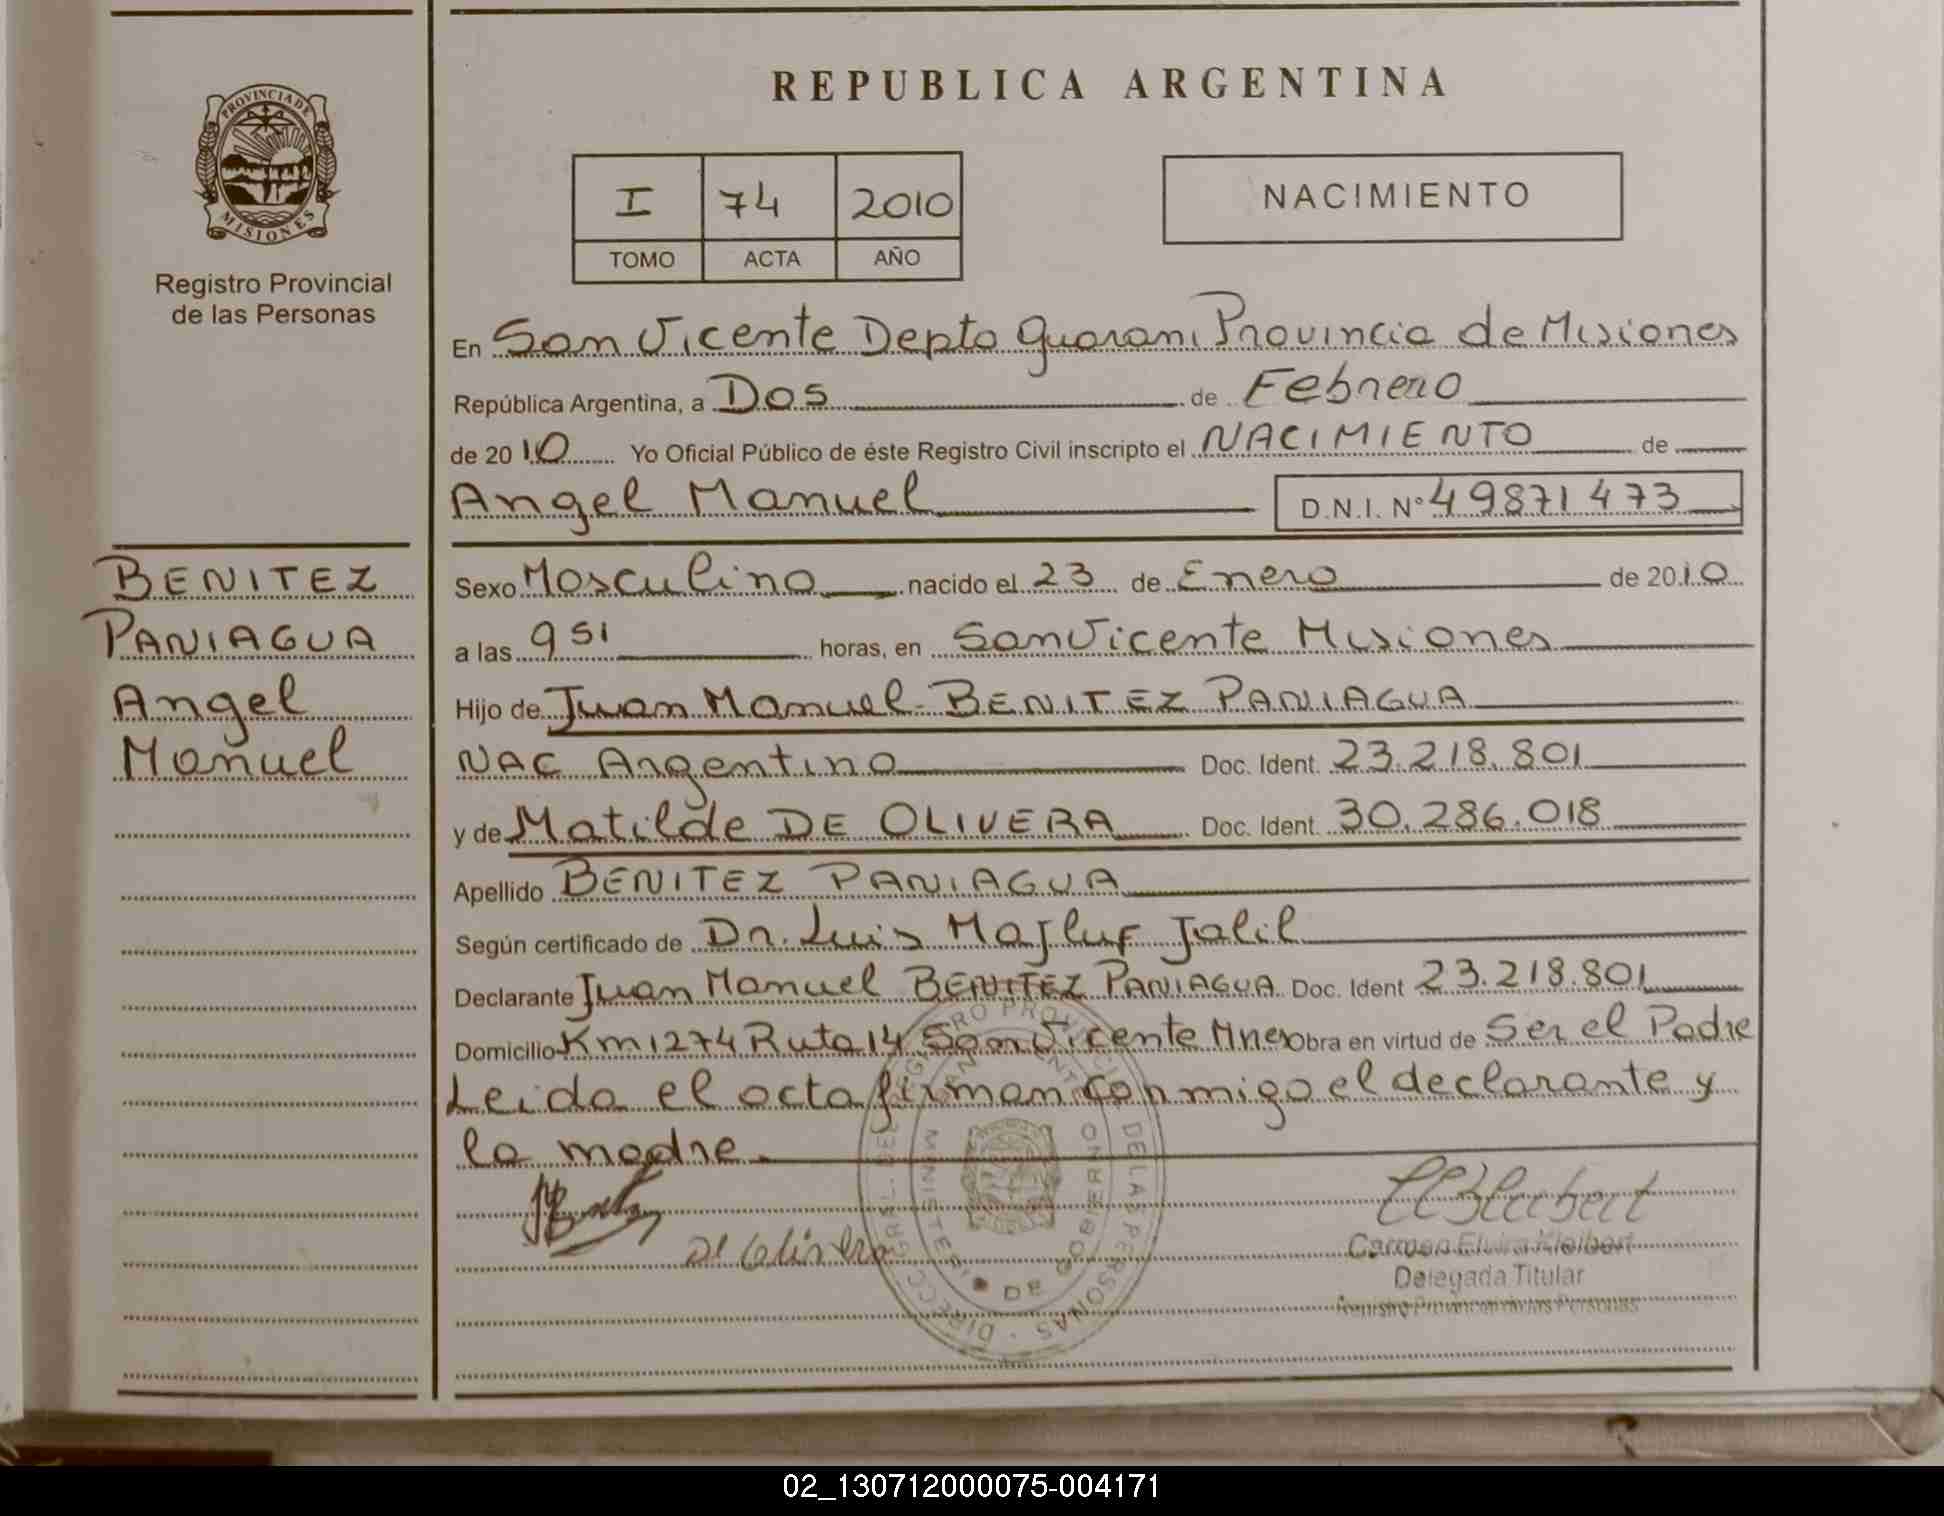 REPUBLICA ARGENTINA
PROVINCIA DE
MISIONES
Registro Provincial
de las Personas
I 74 2010
TOMO ACTA AÑO
NACIMIENTO
En San Vicente Depto Guarani Provincia de Misiones
República Argentina, a Dos de Febrero
de 2010 Yo Oficial Público de éste Registro Civil inscripto el NACIMIENTO de
Angel Manuel D.N.I. N° 49871473
BENITEZ
PANIAGUA
Angel
Manuel
Sexo Masculino nacido el 23 de Enero de 2010
a las 9 51 horas, en San Vicente Misiones
Hijo de Juan Manuel BENITEZ PANIAGUA
NAC Argentino Doc. Ident. 23.218.801
y de Matilde DE OLIVERA Doc. Ident. 30.286.018
Apellido BENITEZ PANIAGUA
Según certificado de Dr. Luis Majluf Jalil
Declarante Juan Manuel BENITEZ PANIAGUA Doc. Ident 23.218.801
Domicilio Km 1274 Ruta 14 San Vicente Mnes Obra en virtud de Ser el Padre
Leida el acta firman conmigo el declarante y
la madre.
Carmen Elvira Kleibert
Delegada Titular
Registro Provincial de las Personas
02_130712000075-004171